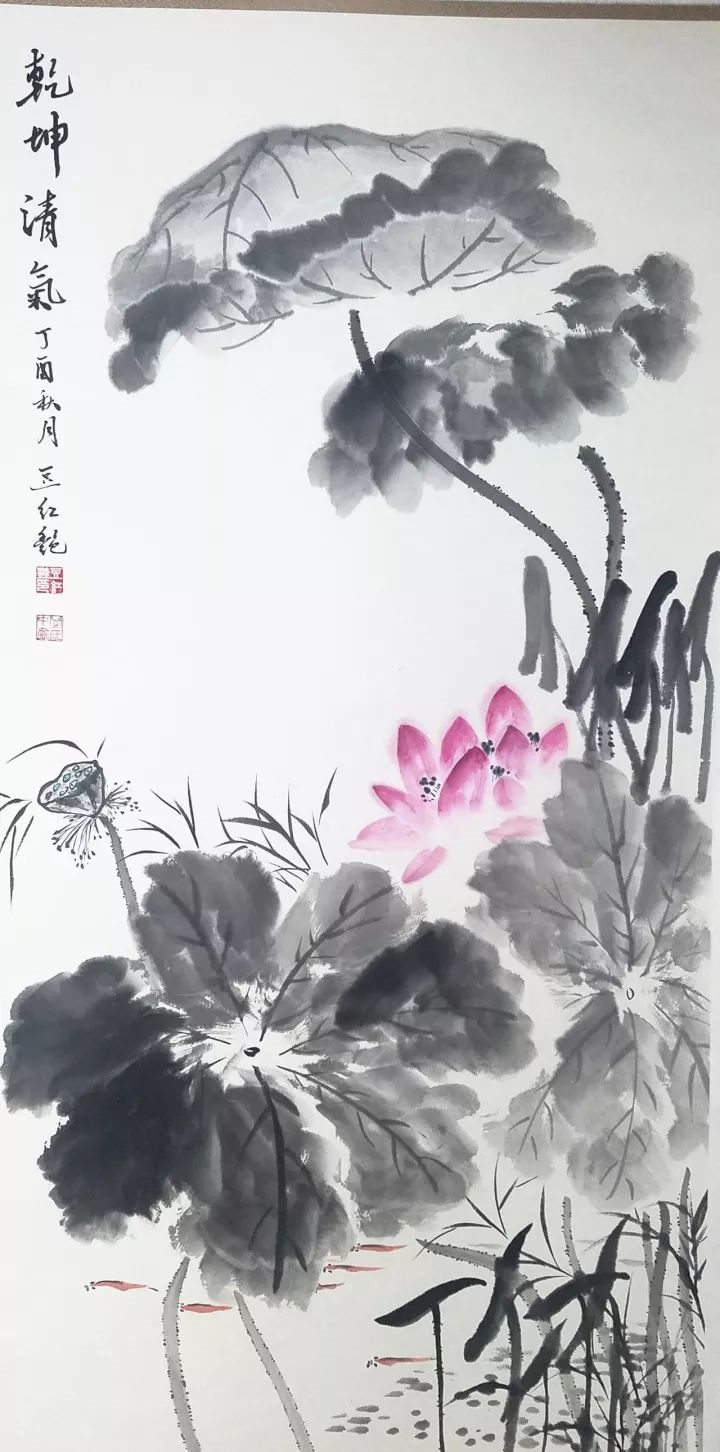 乾坤清氣丁酉秋月红